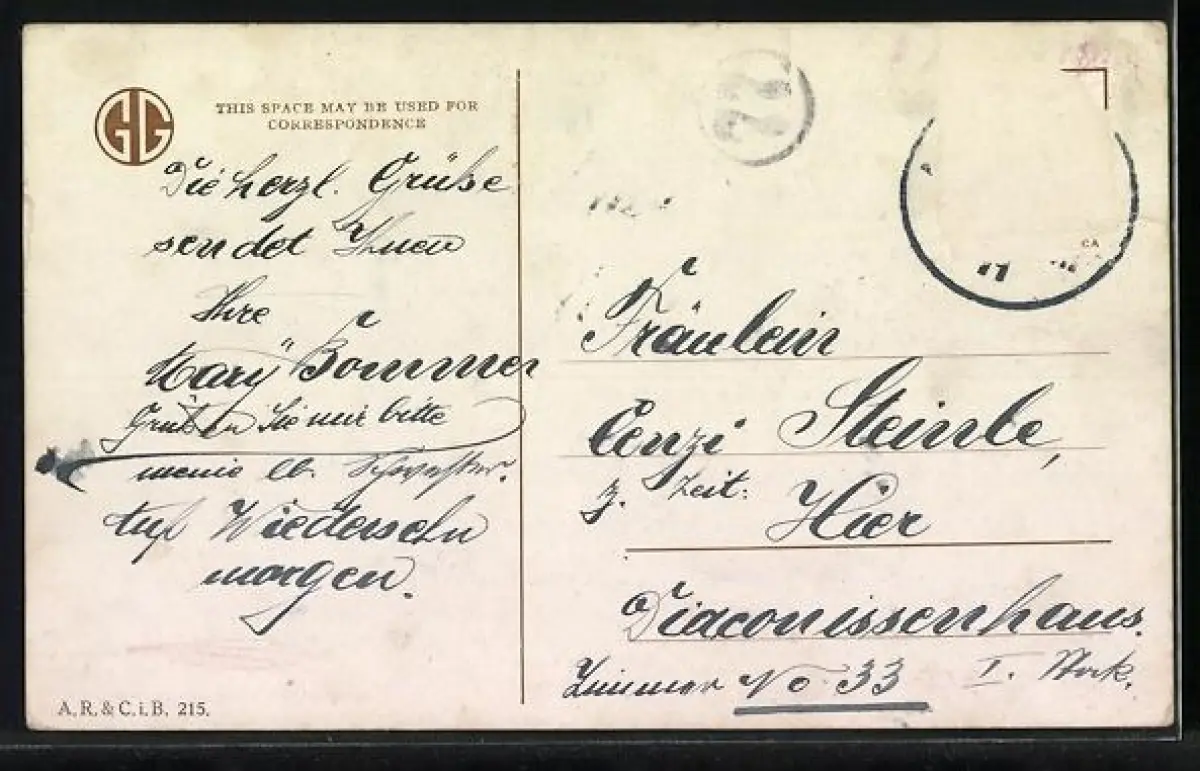 GG
THIS SPACE MAY BE USED FOR
CORRESPONDENCE
Die herzl. Grüße
sendet Ihnen
Ihre
Mary Sommer
Grüßen Sie mir bitte
meine lb. Schwester.
Auf Wiedersehn
morgen.
A. R. & C. i. B. 215.
22
CA
Fräulein
Cenzi Steinle,
z. Zeit: Hier
Diaconissenhaus.
Zimmer No 33 I. Stock.